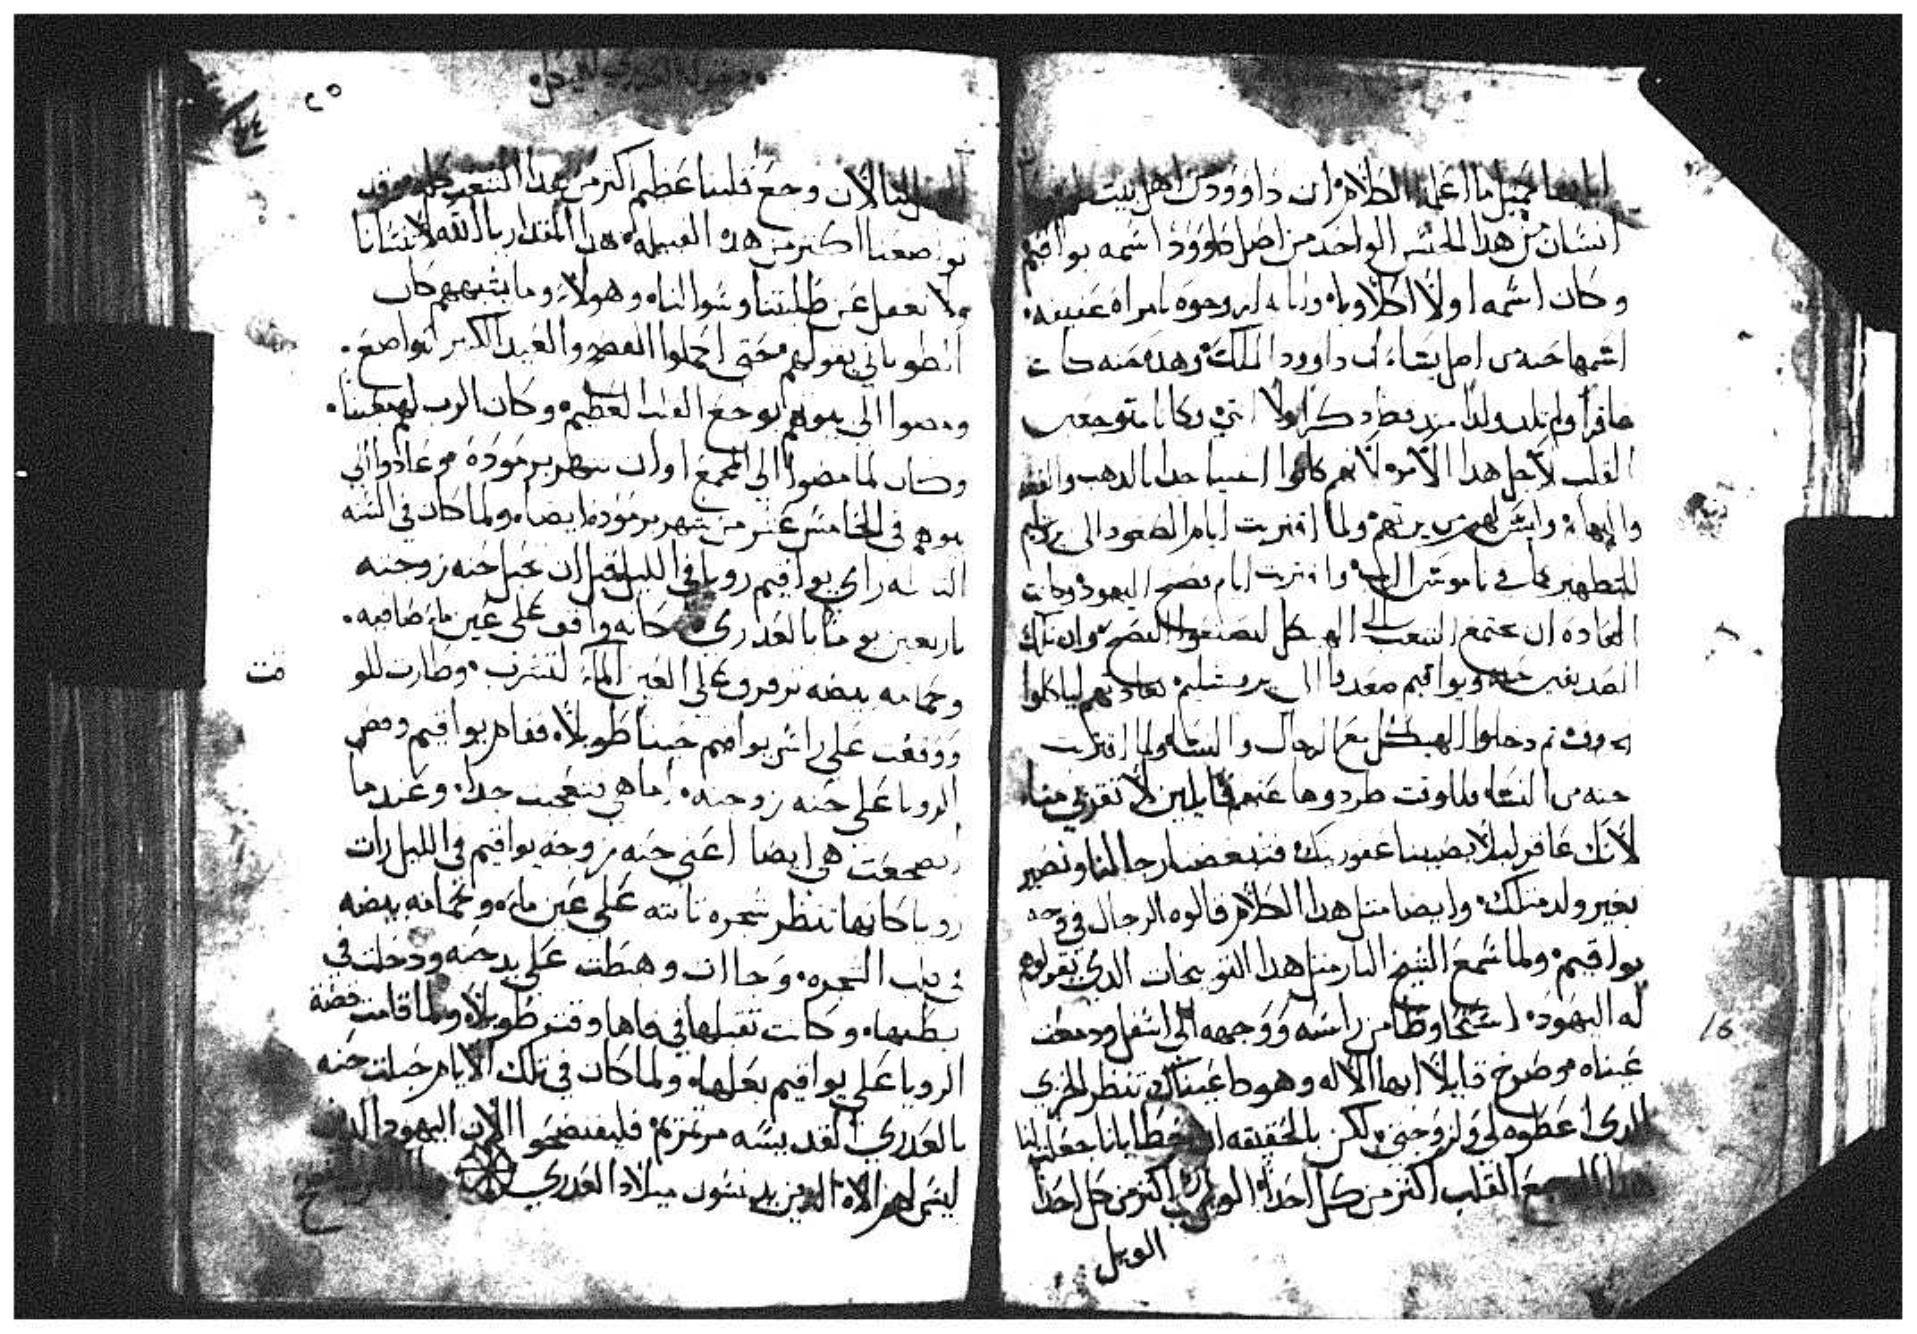 الكلام ان داوود من اهل بيت
انسان من هدا الجنس الواحد من اصل داوود اسمه يواقيم
وكان اسمه اولا اكلاوبا بامراه عفيفه
اسمها حنه من اصل يشاء اب داوود الملك وهده حنه كانت
عاقرا ولم تلد ولدا قط دكرا ولا انتي وكانا متوجعين
القلب لاجل هدا الامر لانهم كانوا اغنيا جدا بالدهب والفضه
والبهايم وليس لهم من يرتهم ولما اقتربت ايام الصعود الى يروشليم
للتطهير كما في ناموس الرب واقتربت ايام فصح اليهود وكانت
العاده ان يجتمع الشعب الى الهيكل ليصنعوا الفصح وان تلك
الصديقين حنه ويواقيم صعدوا الى يروشليم كعادتهم لياكلوا
ثم دخلوا الهيكل مع الرجال والنسا ولما اقتربت
حنه من النسا فللوقت طردوها عنهم قايلين لا تقتربي منا
لانك عاقر ليلا يصيبنا عقوبتك فتبغضنا رجالنا ونصير
بغير ولد متلك وايضا متل هدا الكلام قالوه الرجال في وجه
يواقيم ولما سمع الشيخ البار متل هدا التوبيخات الدي يقولوه
له اليهود استحا وطامن راسه ووجهه الى اسفل ودمعت
عيناه وصرخ قايلا ايها الاله وهودا عيناك تنظر الخزي
الدي اعطوه لي ولزوجتي لكن بالحقيقه ان خطايانا جعلت لنا
هدا القلب اكتر من كل احد الويل اكتر من كل احد
الويل
٢٥
لنا الان وجع قلبنا عظيم اكتر من هدا الشعب كله وقد
تواضعنا اكتر من هده القبيله هدا المقدار يا الله لا تنسانا
ولا تغفل عن طلبتنا وسوالنا وهولا وما يشبههم كان
الطوباني يقولهم حتى اكملوا الفصح والعيد الكبير بتواضع
ومضوا الى بيوتهم بوجع القلب العظيم وكان الرب لهم معينا
وكان لما مضوا الى المجمع اوان شهر برمودة وعادوا الى
بيوتهم في الخامس عشر من شهر برموده ايضا ولما كان في السنه
راي يواقيم رويا في الليل قبل ان تحبل حنه زوجته
باربعين يوما بالعدري كانه واقف على عين ماء صافيه
وحمامه بيضه ترفرف على العين الماء لتشرب وطارت للوقت
ووقفت على راس يواقيم حينا طويلا فقام يواقيم وقص
الرويا على حنه زوجته اما هي فتعجبت جدا وعندما
اضجعت هي ايضا اعني حنه زوجة يواقيم في الليل رات
رويا كانها تنظر شجره نابته على عين ماء وحمامه بيضه
في قلب الشجره وجاات وهبطت على يد حنه ودخلت في
بطنها وكانت تقبلها في فاها وقت طويلا ولما قامت قصة
الرويا على يواقيم بعلها ولما كان في تلك الايام حبلت حنه
بالعدري القديسه مرتمريم فليفتضحوا الان اليهود الدين
ليس لهم الاه الدين يدنسون ميلاد العدري
16